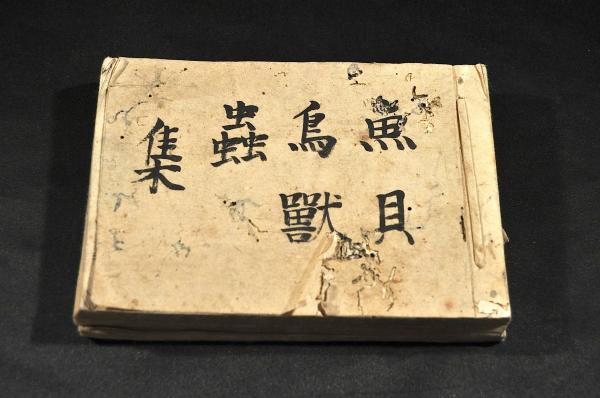 魚貝
鳥獸
蟲
集